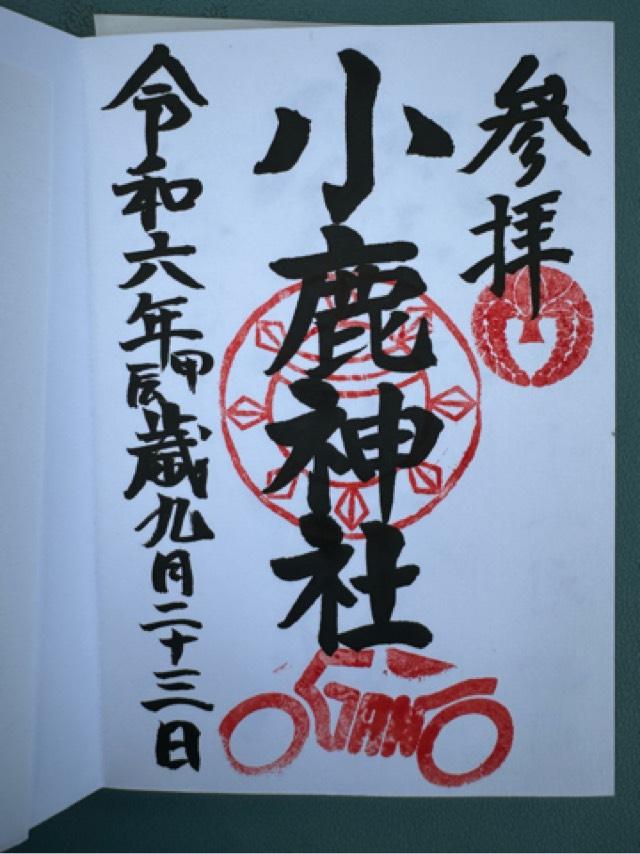 参拝
小鹿神社
令和六年甲辰歳九月二十三日